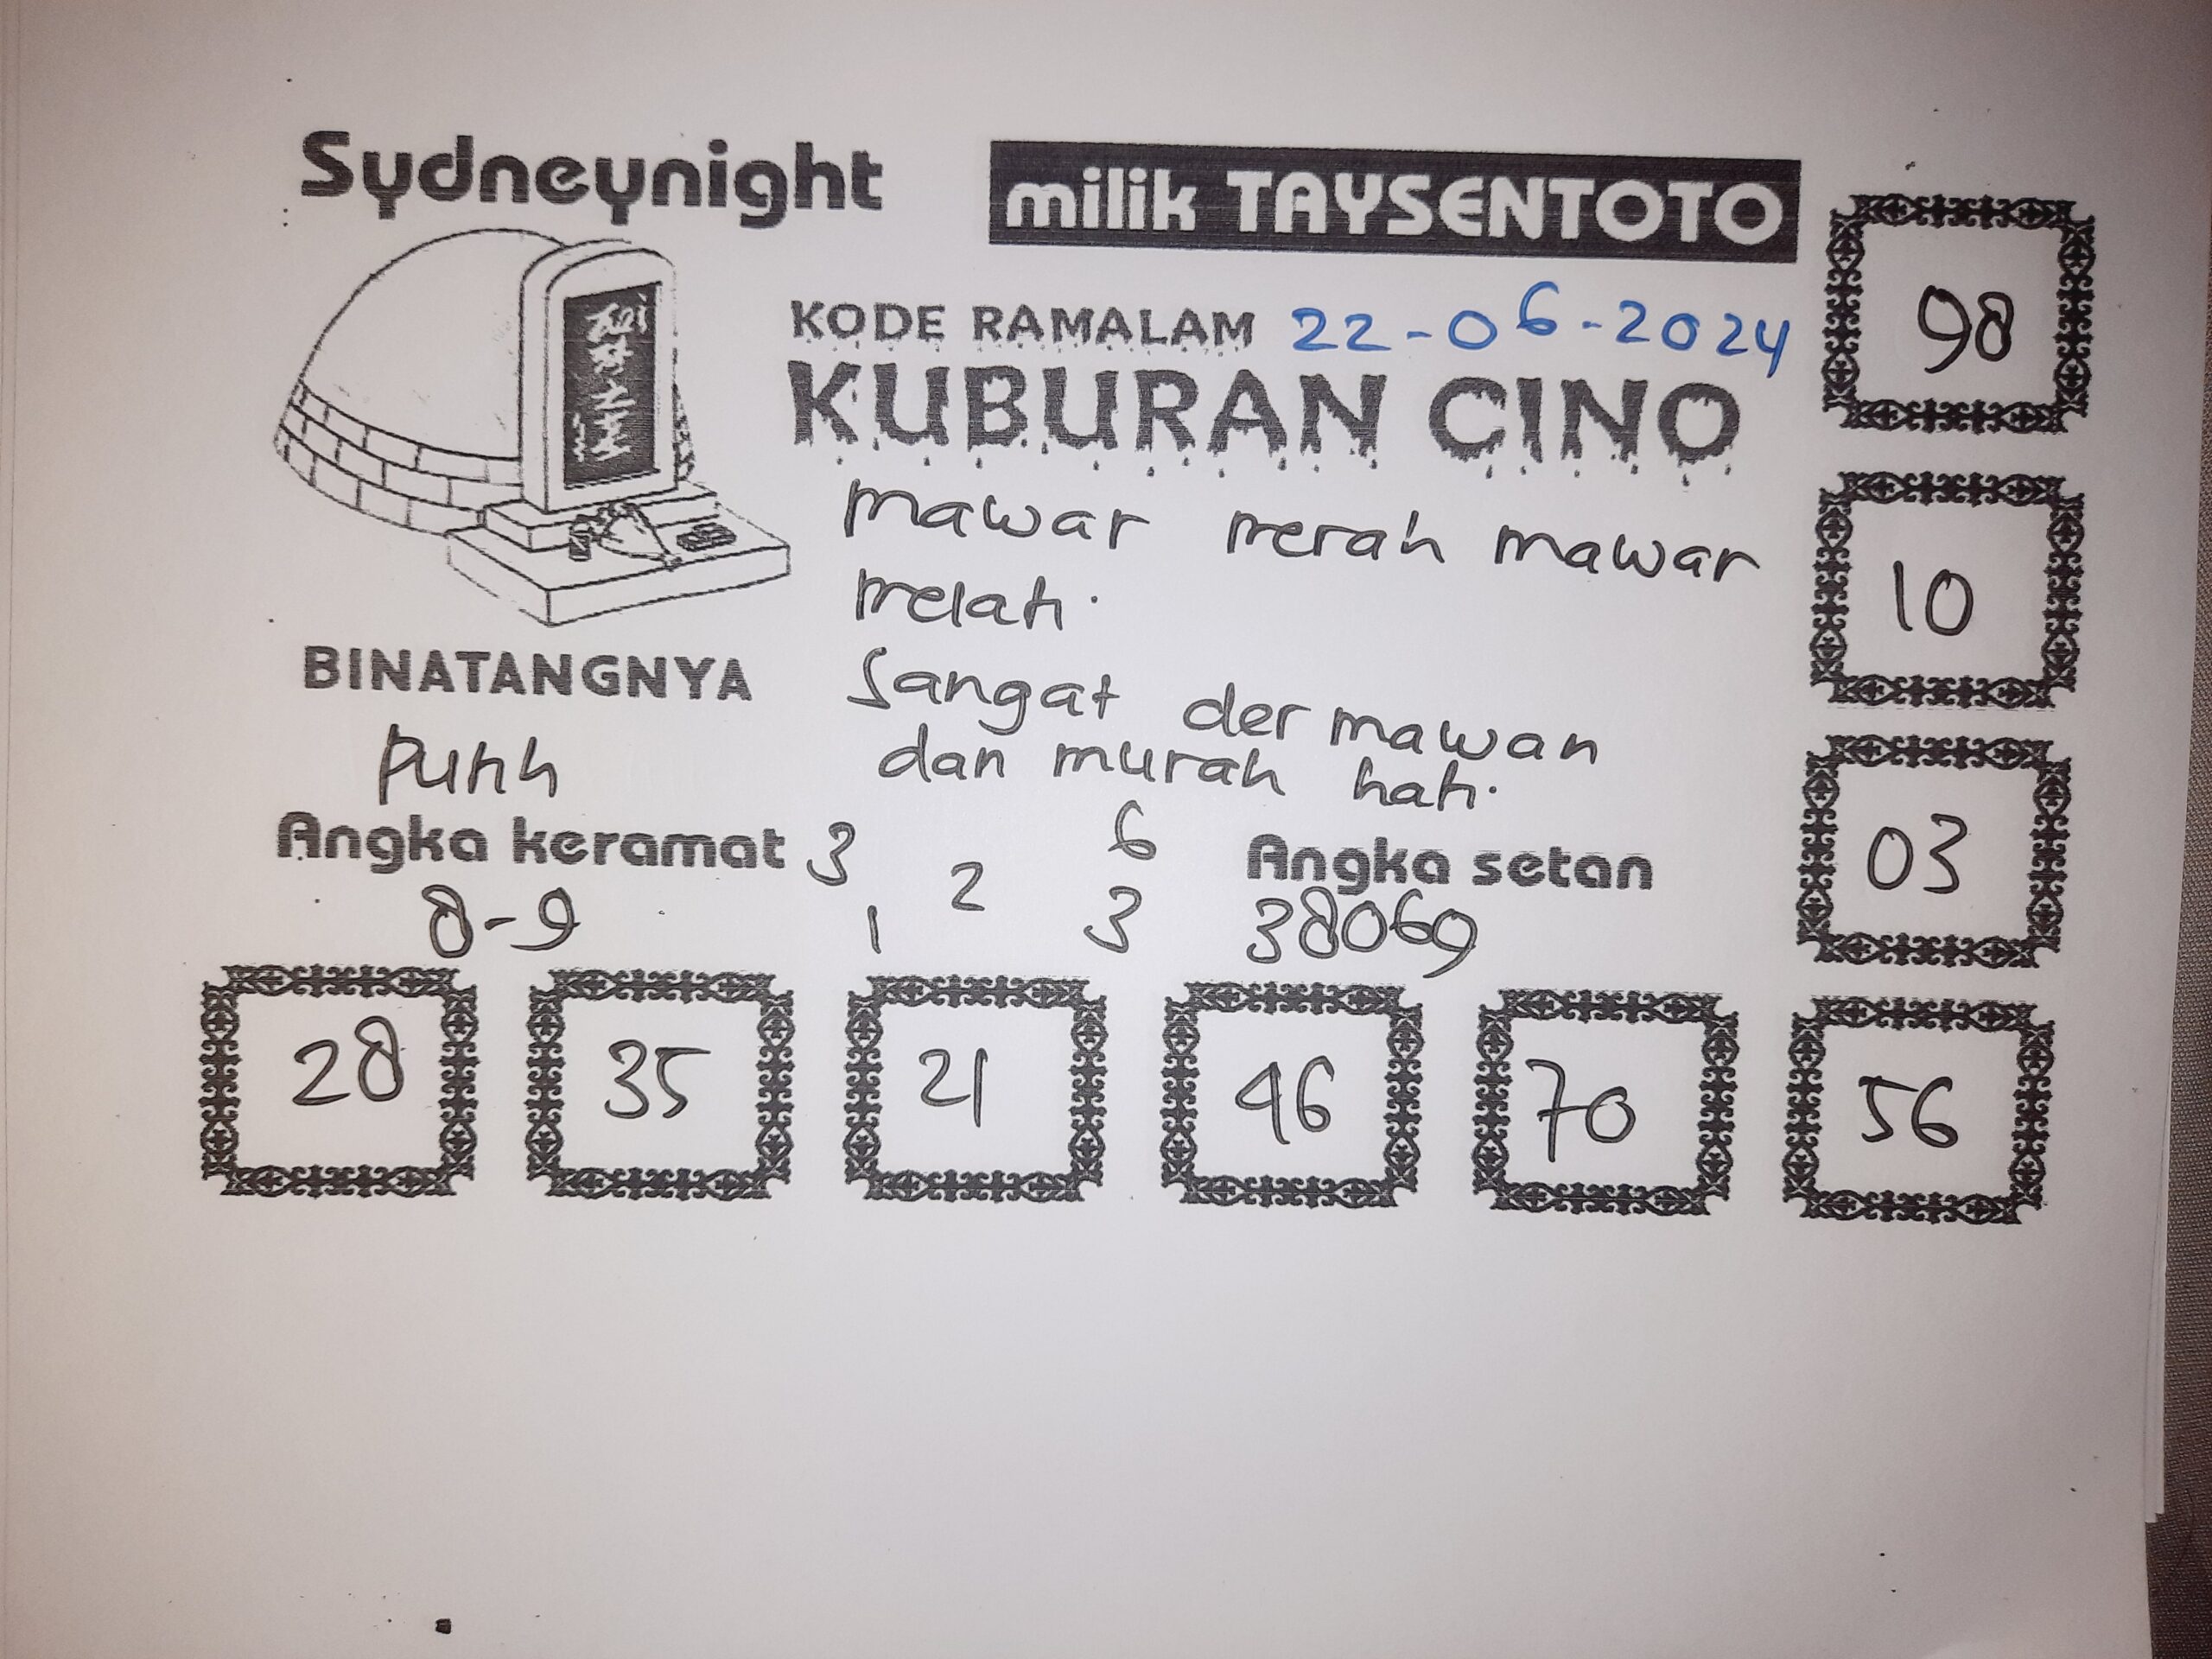 Sydneynight
milik TAYSENTOTO
KODE RAMALAM 22-06-2024
KUBURAN CINO
98
mawar merah mawar
melati.
10
BINATANGNYA
Sangat dermawan
Putih
dan murah hati.
03
Angka keramat
3 6
2
Angka setan
8-9
1 3
38069
28 35 21 46 70 56